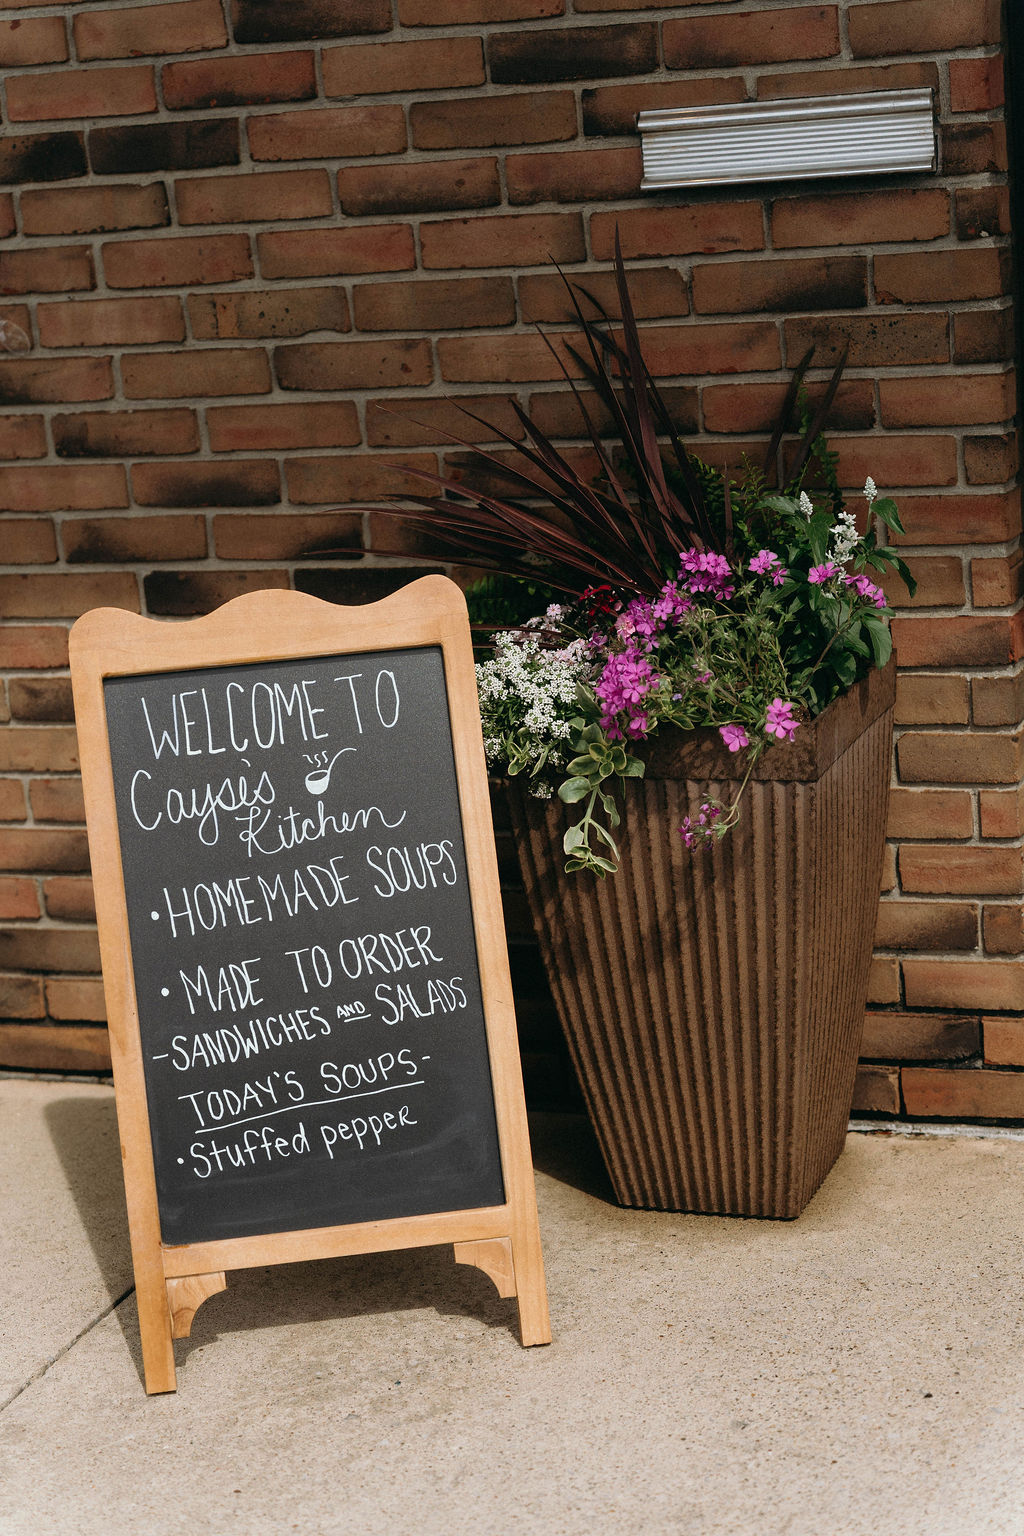 WELCOME TO
Cayse's
Kitchen
• HOMEMADE SOUPS
• MADE TO ORDER
-SANDWICHES AND SALADS
TODAY'S SOUPS-
• Stuffed pepper